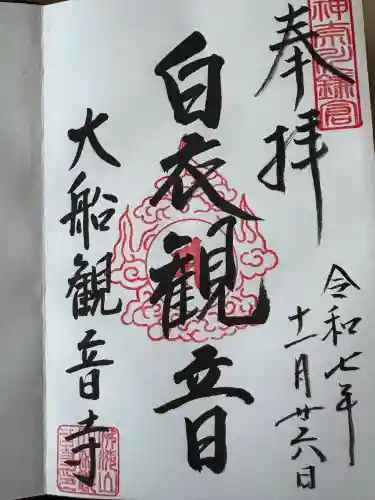 奉拝
神奈川鎌倉
令和七年
十一月廿六日
白衣観音
大船観音寺